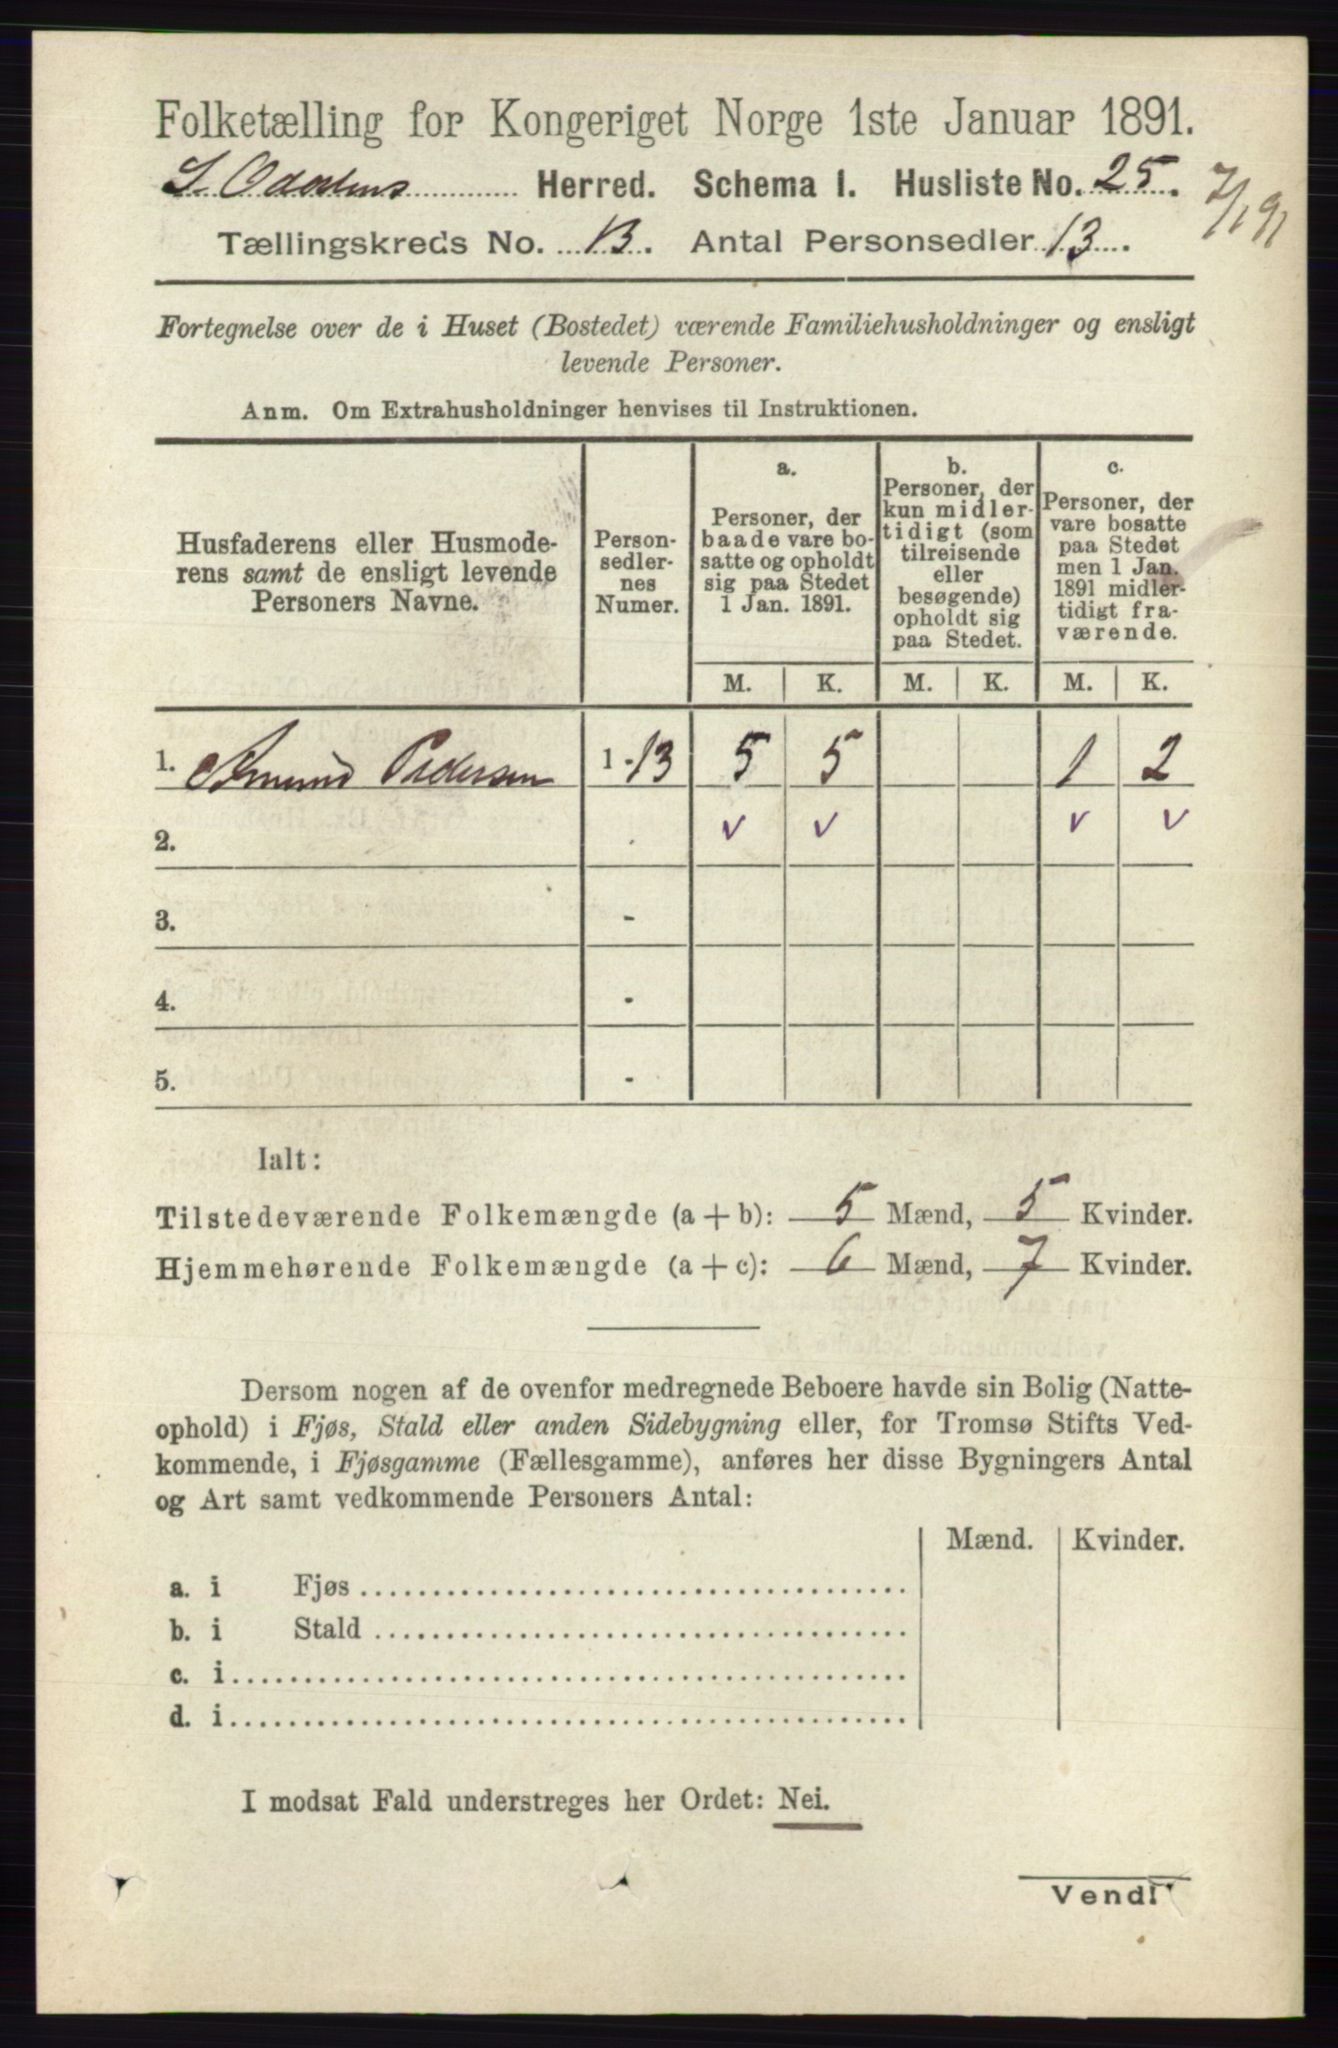 Folketælling for Kongeriget Norge 1ste Januar 1891.
S. Odalens Herred. Schema I. Husliste No. 25.
7/1 91
Tællingskreds No. 13. Antal Personsedler 13.
Fortegnelse over de i Huset (Bostedet) værende Familiehusholdninger og ensligt
levende Personer.
Anm. Om Extrahusholdninger henvises til Instruktionen.
Husfaderens eller Husmode-
rens samt de ensligt levende
Personers Navne.
Person-
sedler-
nes
Numer.
a.
Personer, der
baade vare bo-
satte og opholdt
sig paa Stedet
1 Jan. 1891.
b.
Personer, der
kun midler-
tidigt (som
tilreisende
eller
besøgende)
opholdt sig
paa Stedet.
c.
Personer, der
vare bosatte
paa Stedet
men 1 Jan.
1891 midler-
tidigt fra-
værende.
M. K. M. K. M. K.
1. Amund Pedersen 1-13 5 5 1 2
2. . v v v v
3. -
4. -
5. -
Ialt:
Tilstedeværende Folkemængde (a + b): 5 Mænd, 5 Kvinder.
Hjemmehørende Folkemængde (a + c): 6 Mænd, 7 Kvinder.
Dersom nogen af de ovenfor medregnede Beboere havde sin Bolig (Natte-
ophold) i Fjøs, Stald eller anden Sidebygning eller, for Tromsø Stifts Ved-
kommende, i Fjøsgamme (Fællesgamme), anføres her disse Bygningers Antal
og Art samt vedkommende Personers Antal:
Mænd. Kvinder.
a. i Fjøs
b. i Stald
c. i
d. i
I modsat Fald understreges her Ordet: Nei.
Vend!